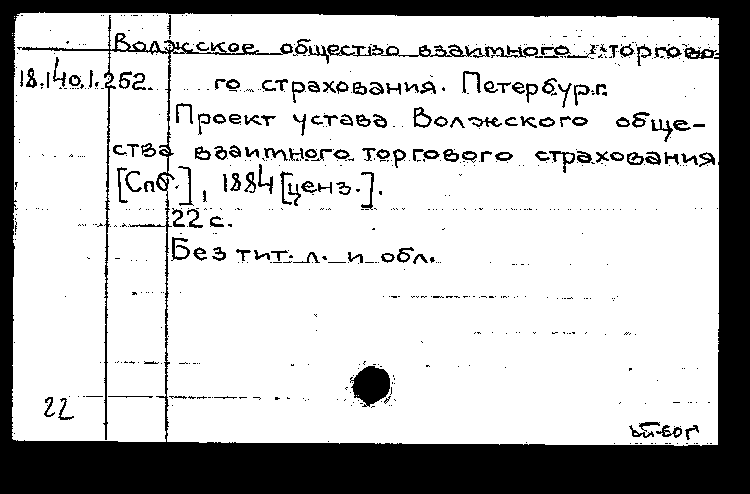 Волжское общество взаимного торгово-
18.140.1.252. го страхования. Петербург.
Проект устава Волжского обще-
ства взаимного торгового страхования.
[Спб.], 1884 [ценз.].
22 с.
Без тит. л. и обл.
22